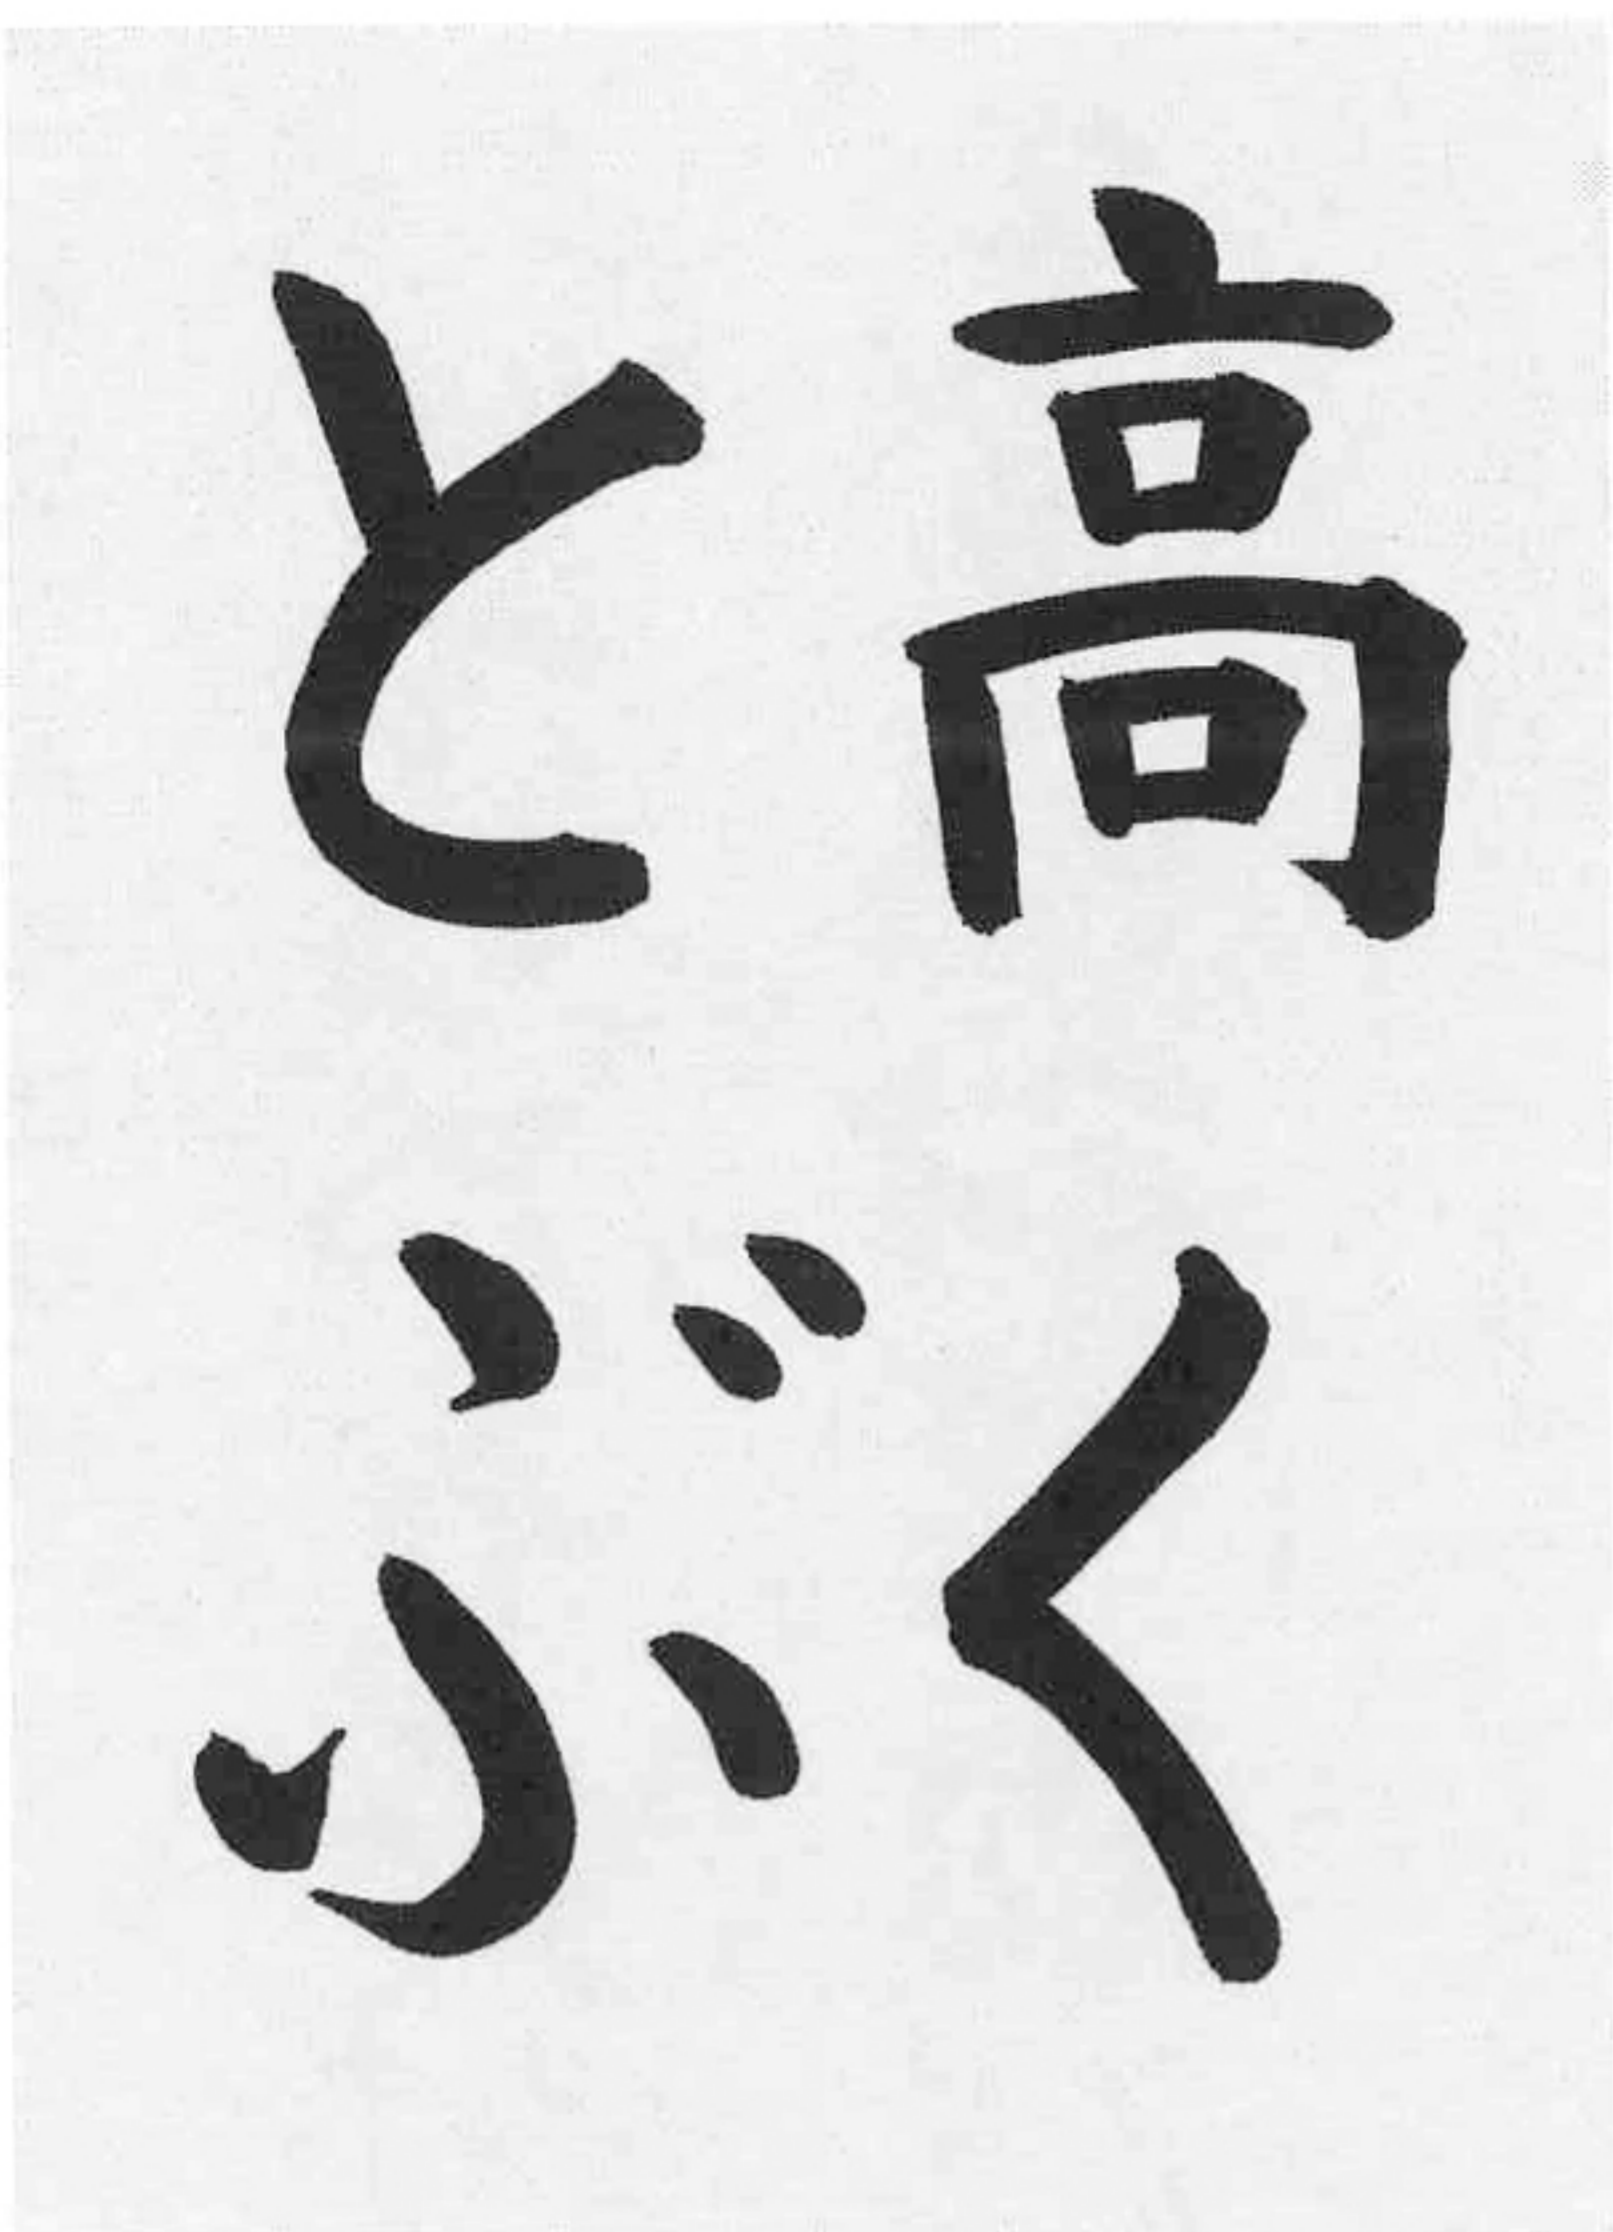 高く
とぶ